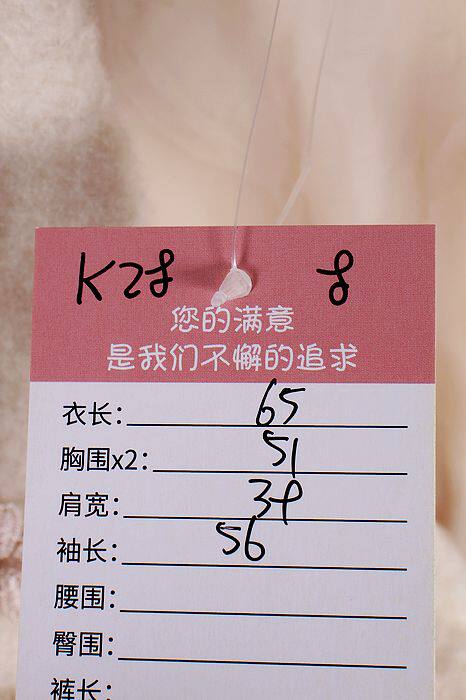 K28 8
您的满意
是我们不懈的追求
衣长: 65
胸围x2: 51
肩宽: 39
袖长: 56
腰围:
臀围:
裤长: